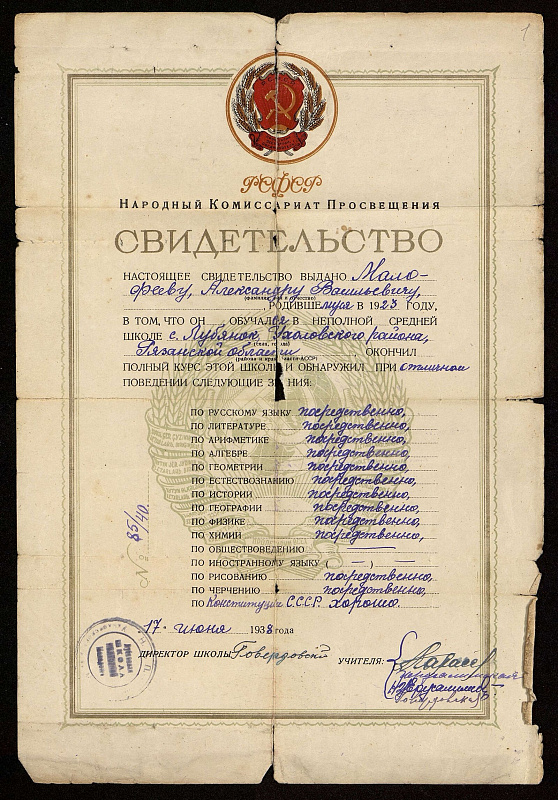 1
РСФСР
НАРОДНЫЙ КОМИССАРИАТ ПРОСВЕЩЕНИЯ
СВИДЕТЕЛЬСТВО
НАСТОЯЩЕЕ СВИДЕТЕЛЬСТВО ВЫДАНО Мало-
фееву, Александру Васильевичу,
(фамилия, имя и отчество)
, РОДИВШЕМУСЯ В 1923 ГОДУ,
В ТОМ, ЧТО ОН ОБУЧАЛСЯ В НЕПОЛНОЙ СРЕДНЕЙ
ШКОЛЕ с. Лубянок, Ухоловского района,
Рязанской области ОКОНЧИЛ
ПОЛНЫЙ КУРС ЭТОЙ ШКОЛЫ И ОБНАРУЖИЛ ПРИ отличном
ПОВЕДЕНИИ СЛЕДУЮЩИЕ ЗНАНИЯ:
ПО РУССКОМУ ЯЗЫКУ посредственно,
ПО ЛИТЕРАТУРЕ посредственно,
ПО АРИФМЕТИКЕ посредственно,
ПО АЛГЕБРЕ посредственно,
ПО ГЕОМЕТРИИ посредственно,
ПО ЕСТЕСТВОЗНАНИЮ посредственно,
ПО ИСТОРИИ посредственно,
ПО ГЕОГРАФИИ посредственно,
ПО ФИЗИКЕ посредственно,
ПО ХИМИИ посредственно,
ПО ОБЩЕСТВОВЕДЕНИЮ —
ПО ИНОСТРАННОМУ ЯЗЫКУ ( — )
ПО РИСОВАНИЮ посредственно,
ПО ЧЕРЧЕНИЮ посредственно,
ПО Конституции С.С.С.Р. хорошо.
№ 85/40.
17 июня 1938 года
ДИРЕКТОР ШКОЛЫ Говердовский УЧИТЕЛЯ:
ШКОЛА